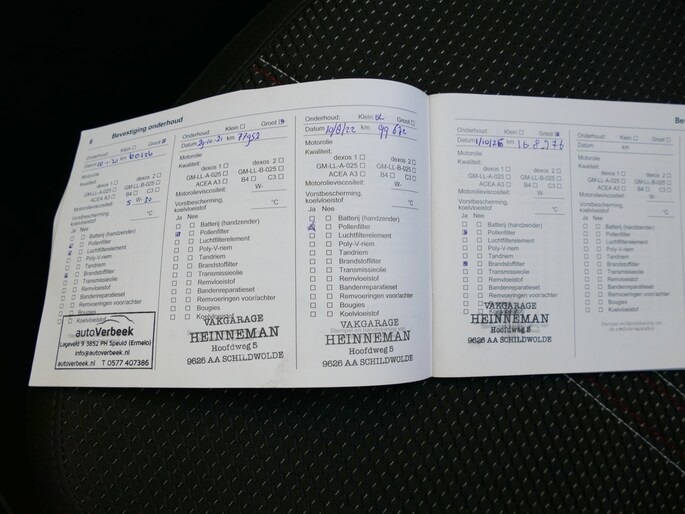 6
Bevestiging onderhoud
Onderhoud: Klein Groot
Datum km 60226
Motorolie
Kwaliteit: dexos 1 dexos 2
GM-LL-A-025 GM-LL-B-025
ACEA A3 B4 C3
Motorolieviscositeit: 5 W- 30
Vorstbescherming, koelvloeistof °C
Ja Nee
Batterij (handzender)
Pollenfilter
Luchtfilterelement
Poly-V-riem
Tandriem
Brandstoffilter
Transmissieolie
Remvloeistof
Bandenreparatieset
Remvoeringen voor/achter
Bougies
Koelvloeistof
autoVerbeek
Lageveld 9 3852 PH Speuld (Ermelo)
info@autoverbeek.nl
autoverbeek.nl T 0577 407386
Onderhoud: Klein Groot
Datum km 77952
Motorolie
Kwaliteit: dexos 1 dexos 2
GM-LL-A-025 GM-LL-B-025
ACEA A3 B4 C3
Motorolieviscositeit: W-
Vorstbescherming, koelvloeistof °C
Ja Nee
Batterij (handzender)
Pollenfilter
Luchtfilterelement
Poly-V-riem
Tandriem
Brandstoffilter
Transmissieolie
Remvloeistof
Bandenreparatieset
Remvoeringen voor/achter
Bougies
Koelvloeistof
VAKGARAGE
HEINNEMAN
Hoofdweg 5
9626 AA SCHILDWOLDE
Onderhoud: Klein Groot
Datum 19/8/22 km 99 672
Motorolie
Kwaliteit: dexos 1 dexos 2
GM-LL-A-025 GM-LL-B-025
ACEA A3 B4 C3
Motorolieviscositeit: W-
Vorstbescherming, koelvloeistof °C
Ja Nee
Batterij (handzender)
Pollenfilter
Luchtfilterelement
Poly-V-riem
Tandriem
Brandstoffilter
Transmissieolie
Remvloeistof
Bandenreparatieset
Remvoeringen voor/achter
Bougies
Koelvloeistof
VAKGARAGE
HEINNEMAN
Hoofdweg 5
9626 AA SCHILDWOLDE
Be
Onderhoud: Klein Groot
Datum km 168976
Motorolie
Kwaliteit: dexos 1 dexos 2
GM-LL-A-025 GM-LL-B-025
ACEA A3 B4 C3
Motorolieviscositeit: W-
Vorstbescherming, koelvloeistof °C
Ja Nee
Batterij (handzender)
Pollenfilter
Luchtfilterelement
Poly-V-riem
Tandriem
Brandstoffilter
Transmissieolie
Remvloeistof
Bandenreparatieset
Remvoeringen voor/achter
Bougies
VAKGARAGE
HEINNEMAN
Hoofdweg 5
9626 AA SCHILDWOLDE
Onderhoud: Klein Groot
Datum km
Motorolie
Kwaliteit: dexos 1 dexos 2
GM-LL-A-025 GM-LL-B-025
ACEA A3 B4 C3
Motorolieviscositeit: W-
Vorstbescherming, koelvloeistof
Ja Nee
Batterij (handzender)
Pollenfilter
Luchtfilterelement
Poly-V-riem
Tandriem
Brandstoffilter
Transmissieolie
Remvloeistof
Bandenreparatieset
Remvoeringen voor/achter
Bougies
Koelvloeistof